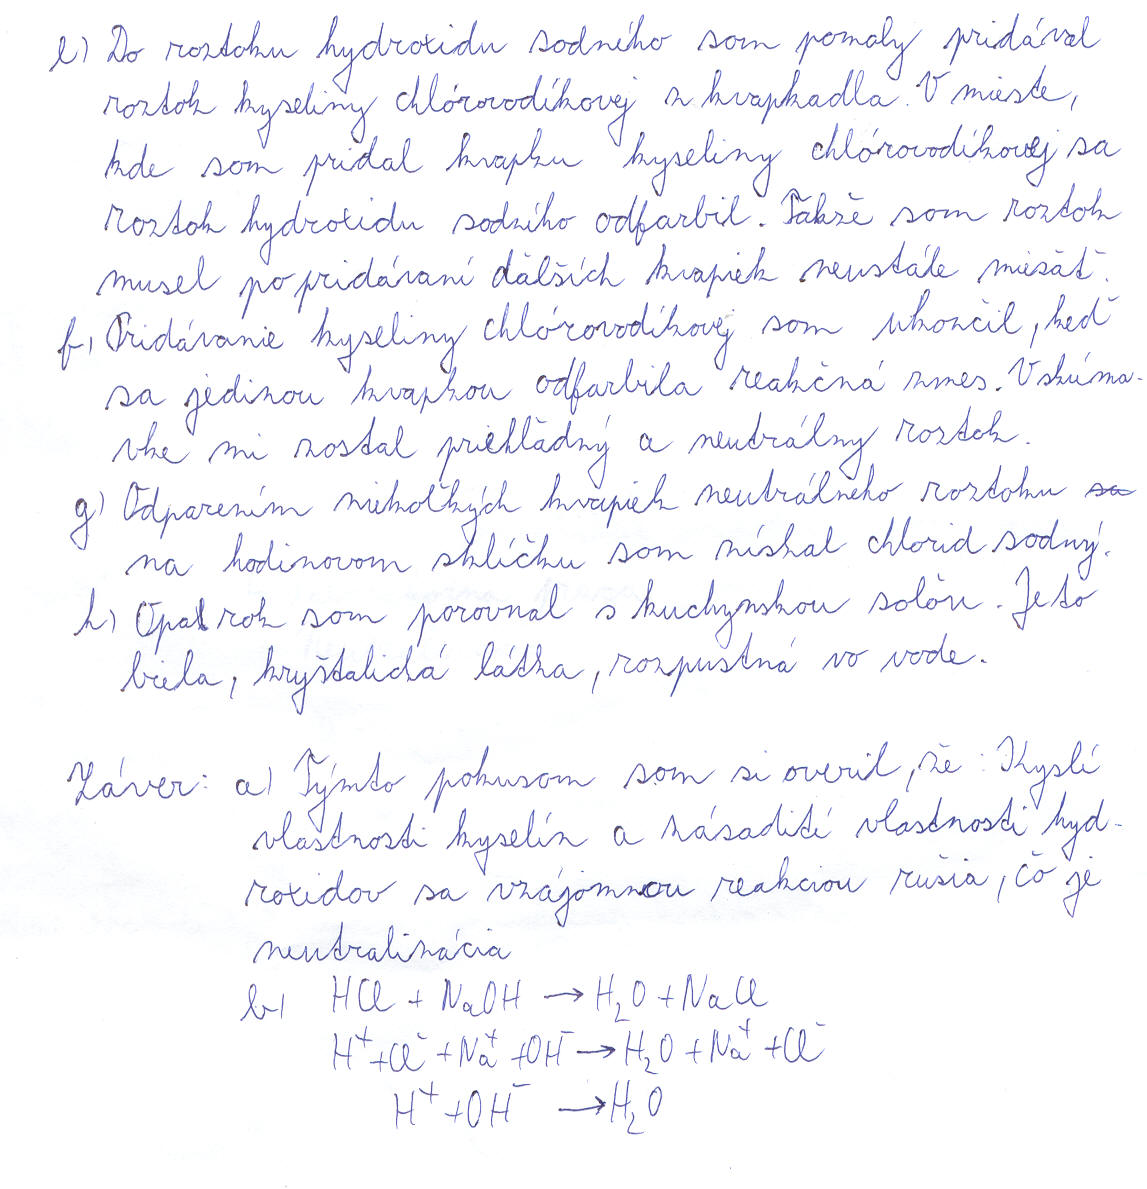 e) Do roztoku hydroxidu sodného som pomaly pridával
roztok kyseliny chlórovodíkovej z kvapkadla. V mieste,
kde som pridal kvapku kyseliny chlórovodíkovej sa
roztok hydroxidu sodného odfarbil. Takže som roztok
musel po pridávaní ďalších kvapiek neustále miešať.
f) Pridávanie kyseliny chlórovodíkovej som ukončil, keď
sa jedinou kvapkou odfarbila reakčná zmes. V skúma-
vke mi zostal priehľadný a neutrálny roztok.
g) Odparením niekoľkých kvapiek neutrálneho roztoku sa
na hodinovom sklíčku som získal chlorid sodný.
h) Opa rok som porovnal s kuchynskou soľou. Je to
biela, kryštalická látka, rozpustná vo vode.
Záver: a) Týmto pokusom som si overil, že: Kyslé
vlastnosti kyselín a zásadité vlastnosti hyd-
roxidov sa vzájomnou reakciou rušia, čo je
neutralizácia
b) HCl + NaOH → H₂O + NaCl
H⁺ + Cl⁻ + Na⁺ + OH⁻ → H₂O + Na⁺ + Cl⁻
H⁺ + OH⁻ → H₂O